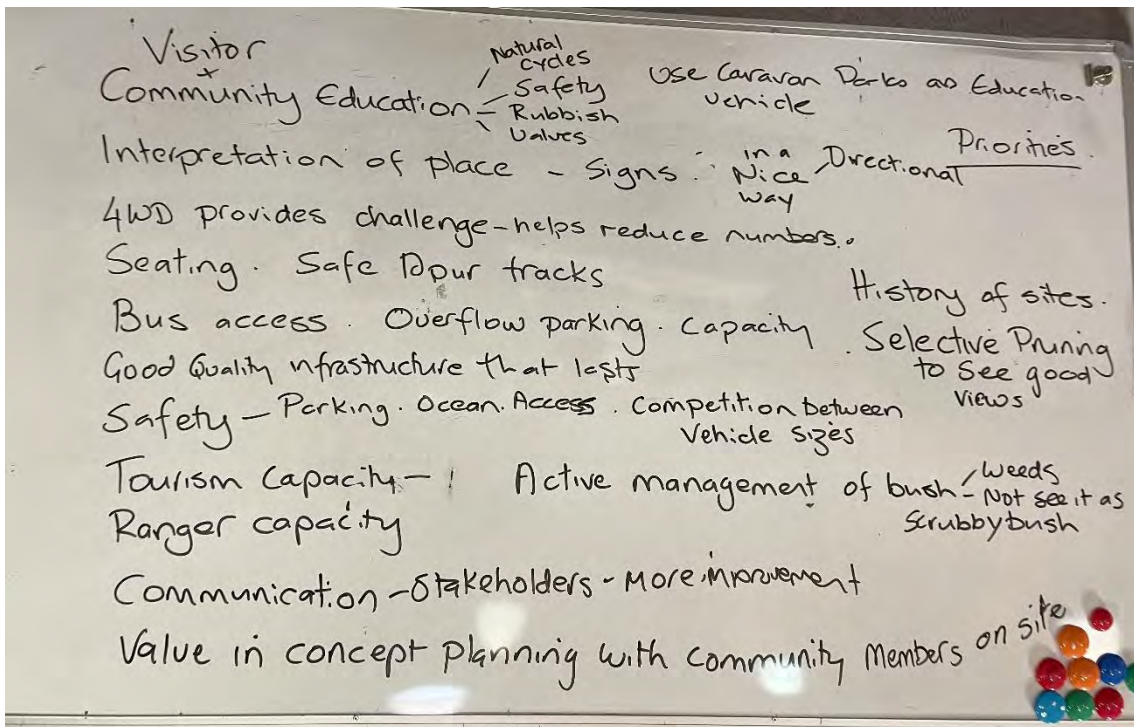 Visitor
+
Community Education
Natural
cycles
Safety
Rubbish
Values
Use Caravan Parks as Education
vehicle
Priorities.
Interpretation of place - Signs.
in a
Nice
way
Directional
4WD provides challenge - helps reduce numbers.
Seating. Safe tracks
History of sites.
Bus access. Overflow parking. Capacity
. Selective Pruning
to see good
views
Good Quality infrastructure that lasts
Safety - Parking. Ocean. Access. Competition between
Vehicle sizes
Tourism Capacity -
Active management of bush
- weeds
- Not see it as
scrubby bush
Ranger capacity
Communication - Stakeholders - More improvement
Value in concept planning with community members on site